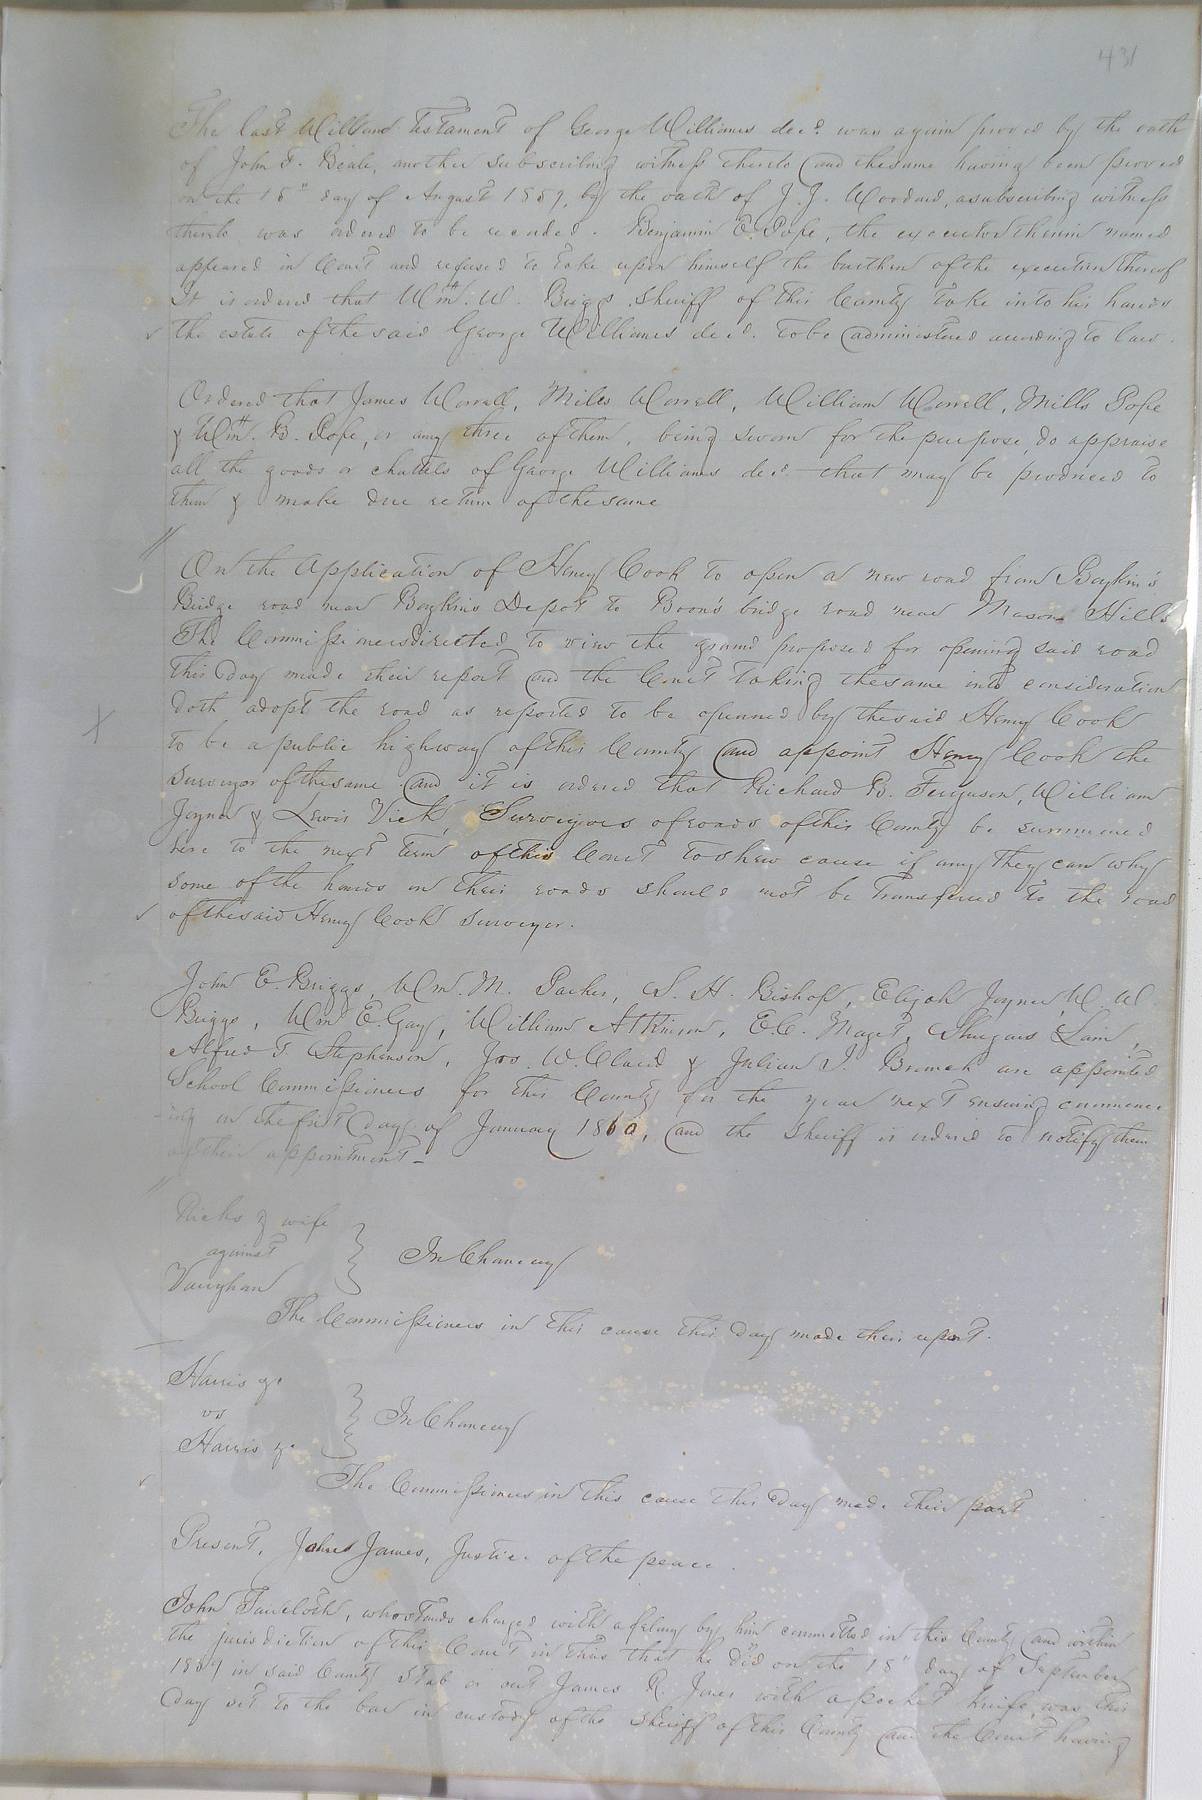 431
The last Will and Testament of George Williams decd. was again proved by the oath
of John F. Beale, another subscribing witness thereto and the same having been proved
on the 15" day of August 1859, by the oath of J. J. Woodard, a subscribing witness
thereto was ordered to be recorded. Benjamin E. Pope, the executor therein named
appeared in Court and refused to take upon himself the burthen of the execution thereof
It is ordered that Wm. W. Briggs Sheriff of this County take into his hands
the estate of the said George Williams decd. to be administered according to law.
Ordered that James Worrell, Miles Worrell, William Worrell, Mills Pope
& Wm. B. Pope, or any three of them, being sworn for the purpose, do appraise
all the goods or chattels of George Williams decd that may be produced to
them & make due return of the same
On the Application of Henry Cook to open a new road from Boykin's
Bridge road near Boykins Depot to Boon's bridge road near Mason Hills
The Commissioners directed to view the ground proposed for opening said road
this day made their report and the Court taking the same into consideration
doth adopt the road as reported to be openned by the said Henry Cook
to be a public highway of this County and appoint Henry Cook the
Surveyor of the same and it is ordered that Richard B. Ferguson, William
Joyner & Lewis Vick, Surveyors of roads of this County be summoned
here to the next term of this Court to shew cause if any they can why
some of the hands on their roads should not be transferred to the road
of the said Henry Cook surveyor.
John E. Briggs, Wm. M. Parker, S. H. Bishop, Elijah Joyner, W. W.
Briggs, Wm E. Gay, William Atkinson, E. C. Maget, Shugars Lain,
Alfred T. Stephenson, Jos. W. Claud & Julian J. Branch are appointed
School Commissioners for this County for the year next ensuing commenc
ing on the first day of January 1860, and the Sheriff is ordered to notify them
of their appointment –
Ricks & wife
against
Vaughan
In Chancery
The Commissioners in this cause this day made their report.
Harris &c
vs
Harris &c
In Chancery
The Commissioners in this cause this day made their part
Present, John James, Justice of the peace.
John who stands charged with a felony by him committed in this County and within
the jurisdiction of this Court in this that he did on the 15" day of September
1859 in said County Stab or cut James R. Jones with a pocket Knife, was this
day set to the bar in custody of the Sheriff of this County and the Court having